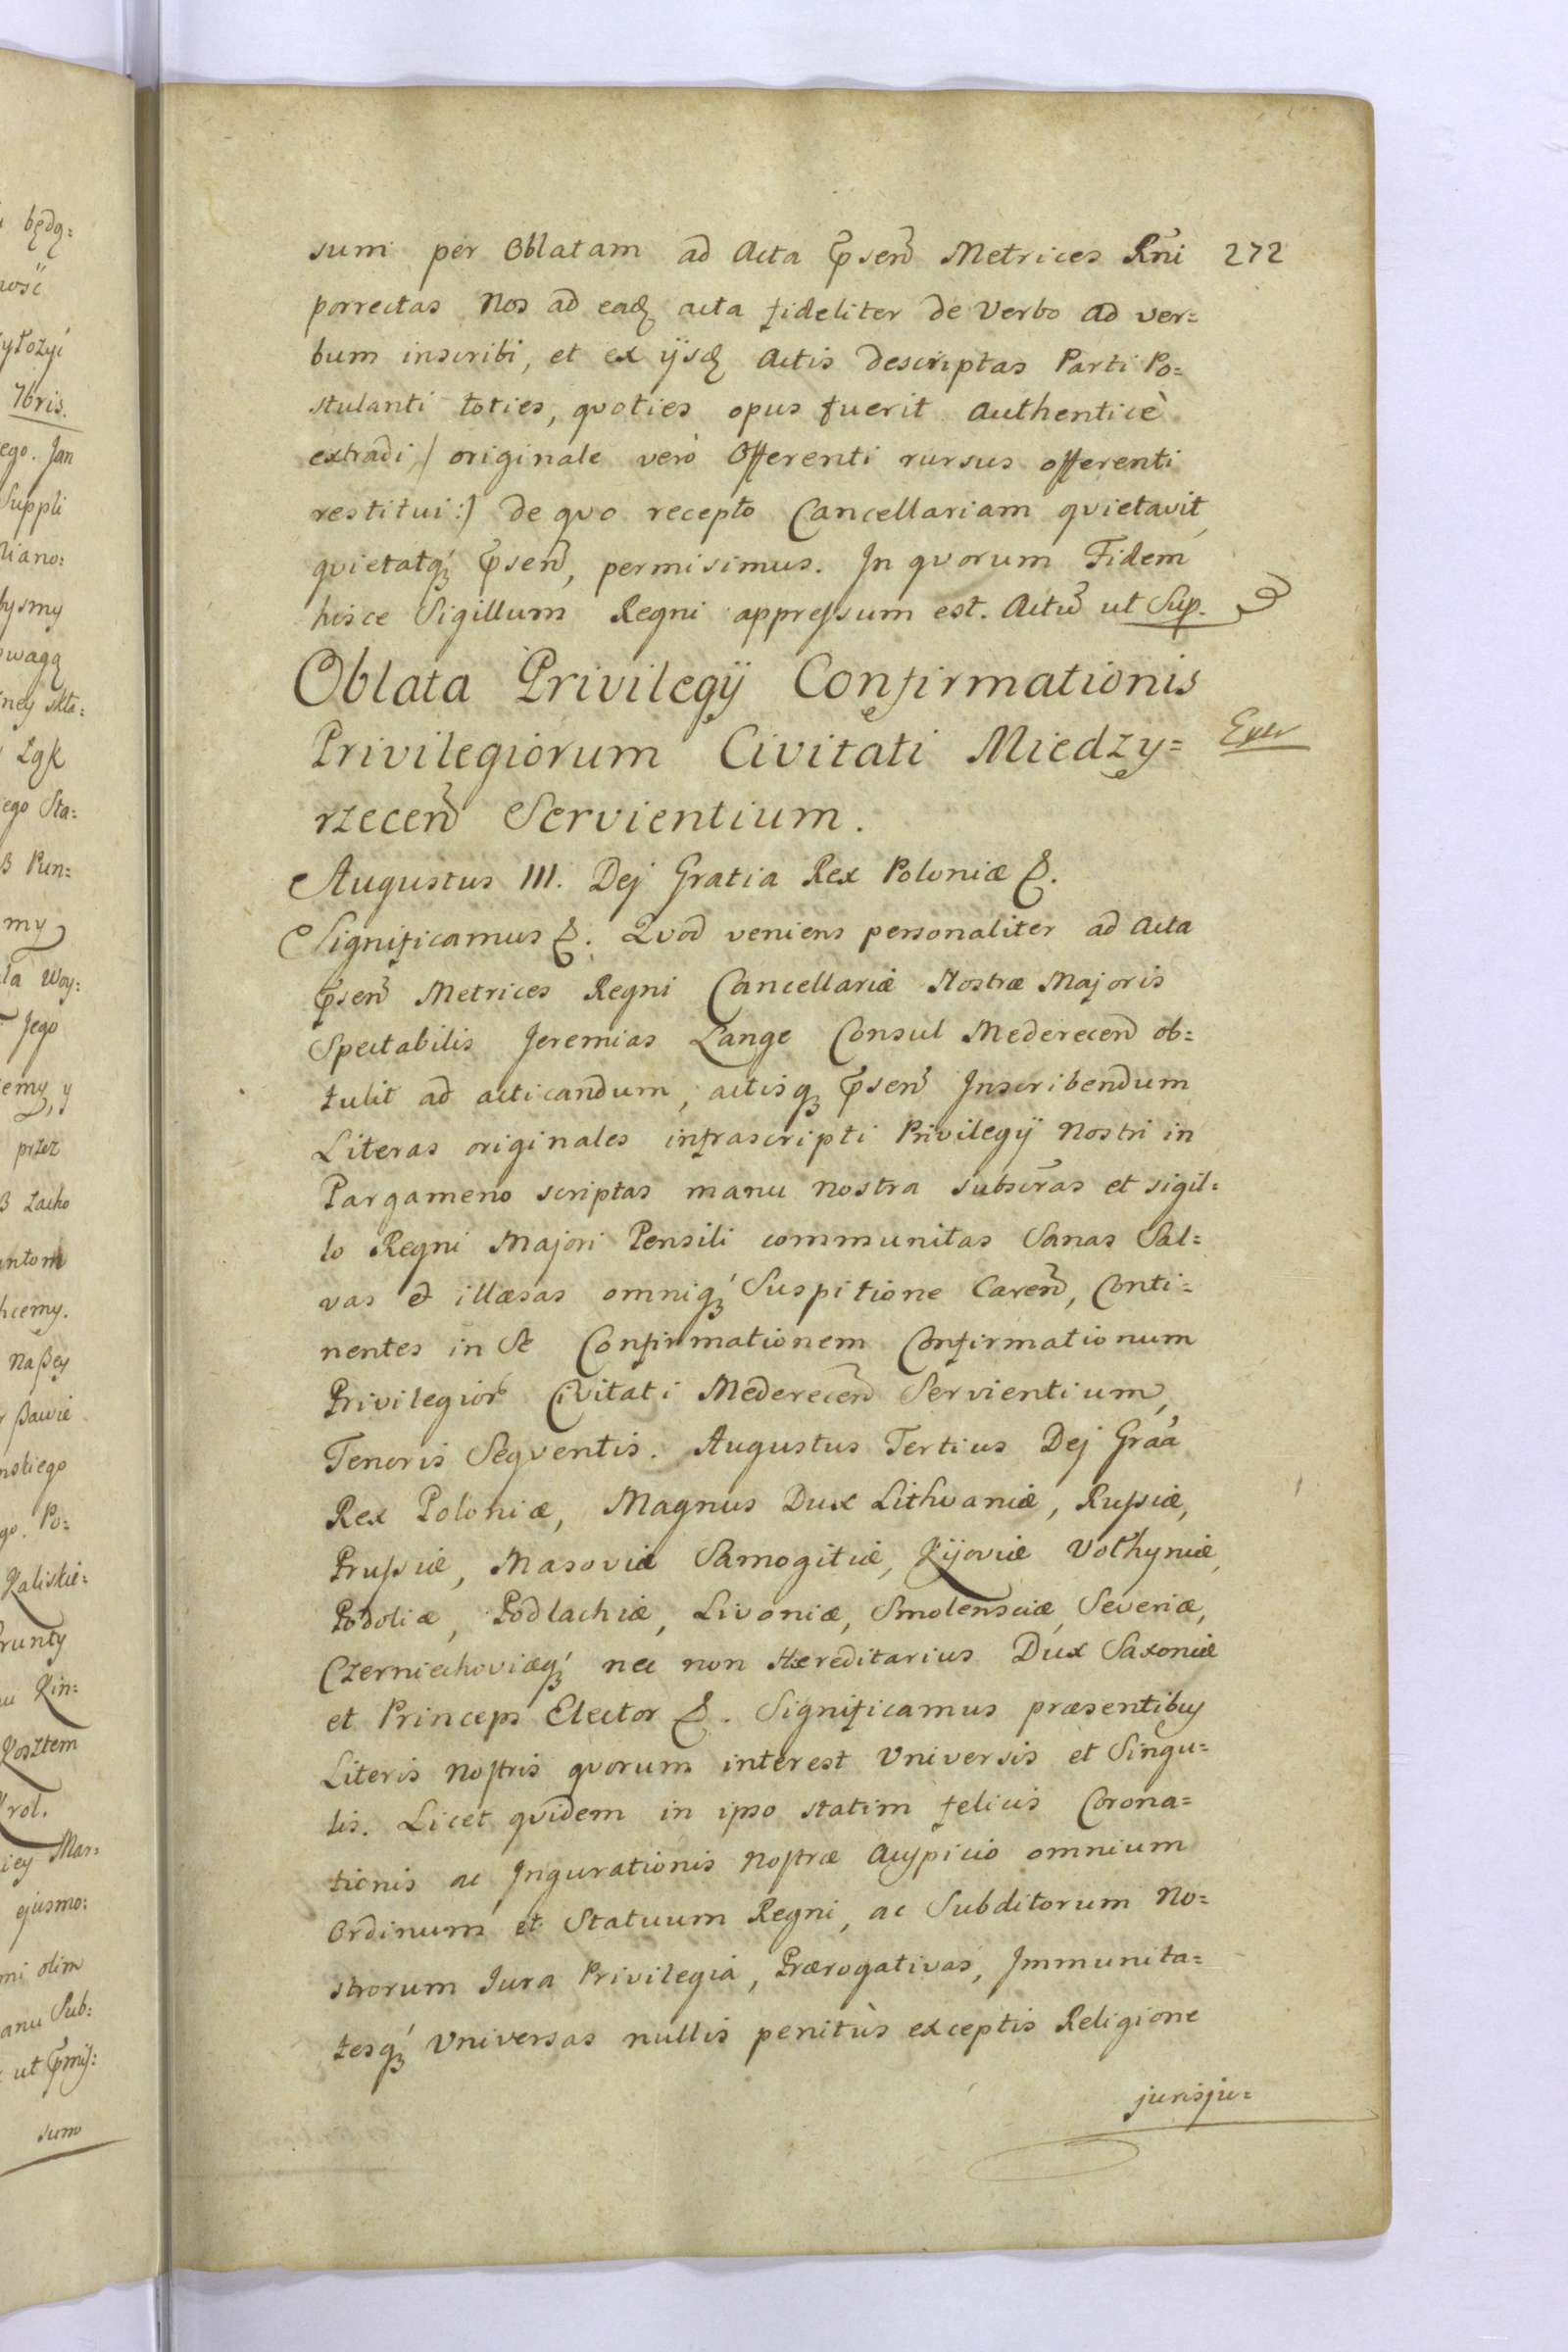 sum per Oblatam ad Acta Psen̄ Metrices Rñi 272
porrectas Nos ad eaq̨ acta fideliter de Verbo ad ver=
bum inscribi, et ex ijsq̨ Actis descriptas Parti Po=
stulanti toties, quoties opus fuerit authenticè
extradi / originale verò Offerenti rursus offerenti
restitui:/ de quo recepto Cancellariam quietavit
quietatq́ Psen̄, permisimus. In quorum Fidem
hisce Sigillum Regni appressum est. Actū ut Sup.
Oblata Privilegij Confirmationis
Privilegiorum Civitati Miedzy=
rzecen̄ Servientium.
Augustus III. Dej Gratia Rex Poloniæ &.
Significamus &. Quod veniens personaliter ad Acta
Psen̄ Metrices Regni Cancellariæ Nostræ Majoris
Spectabilis Jeremias Lange Consul Mederecen̄ ob=
tulit ad acticandum, actisq Psen̄ Inscribendum
Literas originales infrascripti Privilegij Nostri in
Pargameno scriptas manu nostra subscr̄as et sigil=
lo Regni Majori Pensili communitas Sanas Sal=
vas & illæsas omniq́ Suspitione Caren̄, Conti=
nentes in Se Confirmationem Confirmationum
Privilegior Civitati Mederecen̄ Servientium,
Tenoris Sequentis. Augustus Tertius Dej Grãa
Rex Poloniæ, Magnus Dux Lithvaniæ, Russiæ,
Prussiæ, Masoviæ Samogitiæ, Kijoviæ Volhyniæ,
Podoliæ, Podlachiæ, Livoniæ, Smolensciæ, Severiæ,
Czerniechoviæq́ nec non Hæreditarius Dux Saxoniæ
et Princeps Elector &. Significamus præsentibus
Literis Nostris quorum interest Universis et Singu=
lis. Licet quidem in ipso statim felicis Corona=
tionis ac Ingurationis Nostræ Auspicio omnium
Ordinum et Statuum Regni, ac Subditorum No=
strorum Jura Privilegia, Prærogativas, Immunita=
tesq́ Universas nullis penitùs exceptis Religione
jurisju=